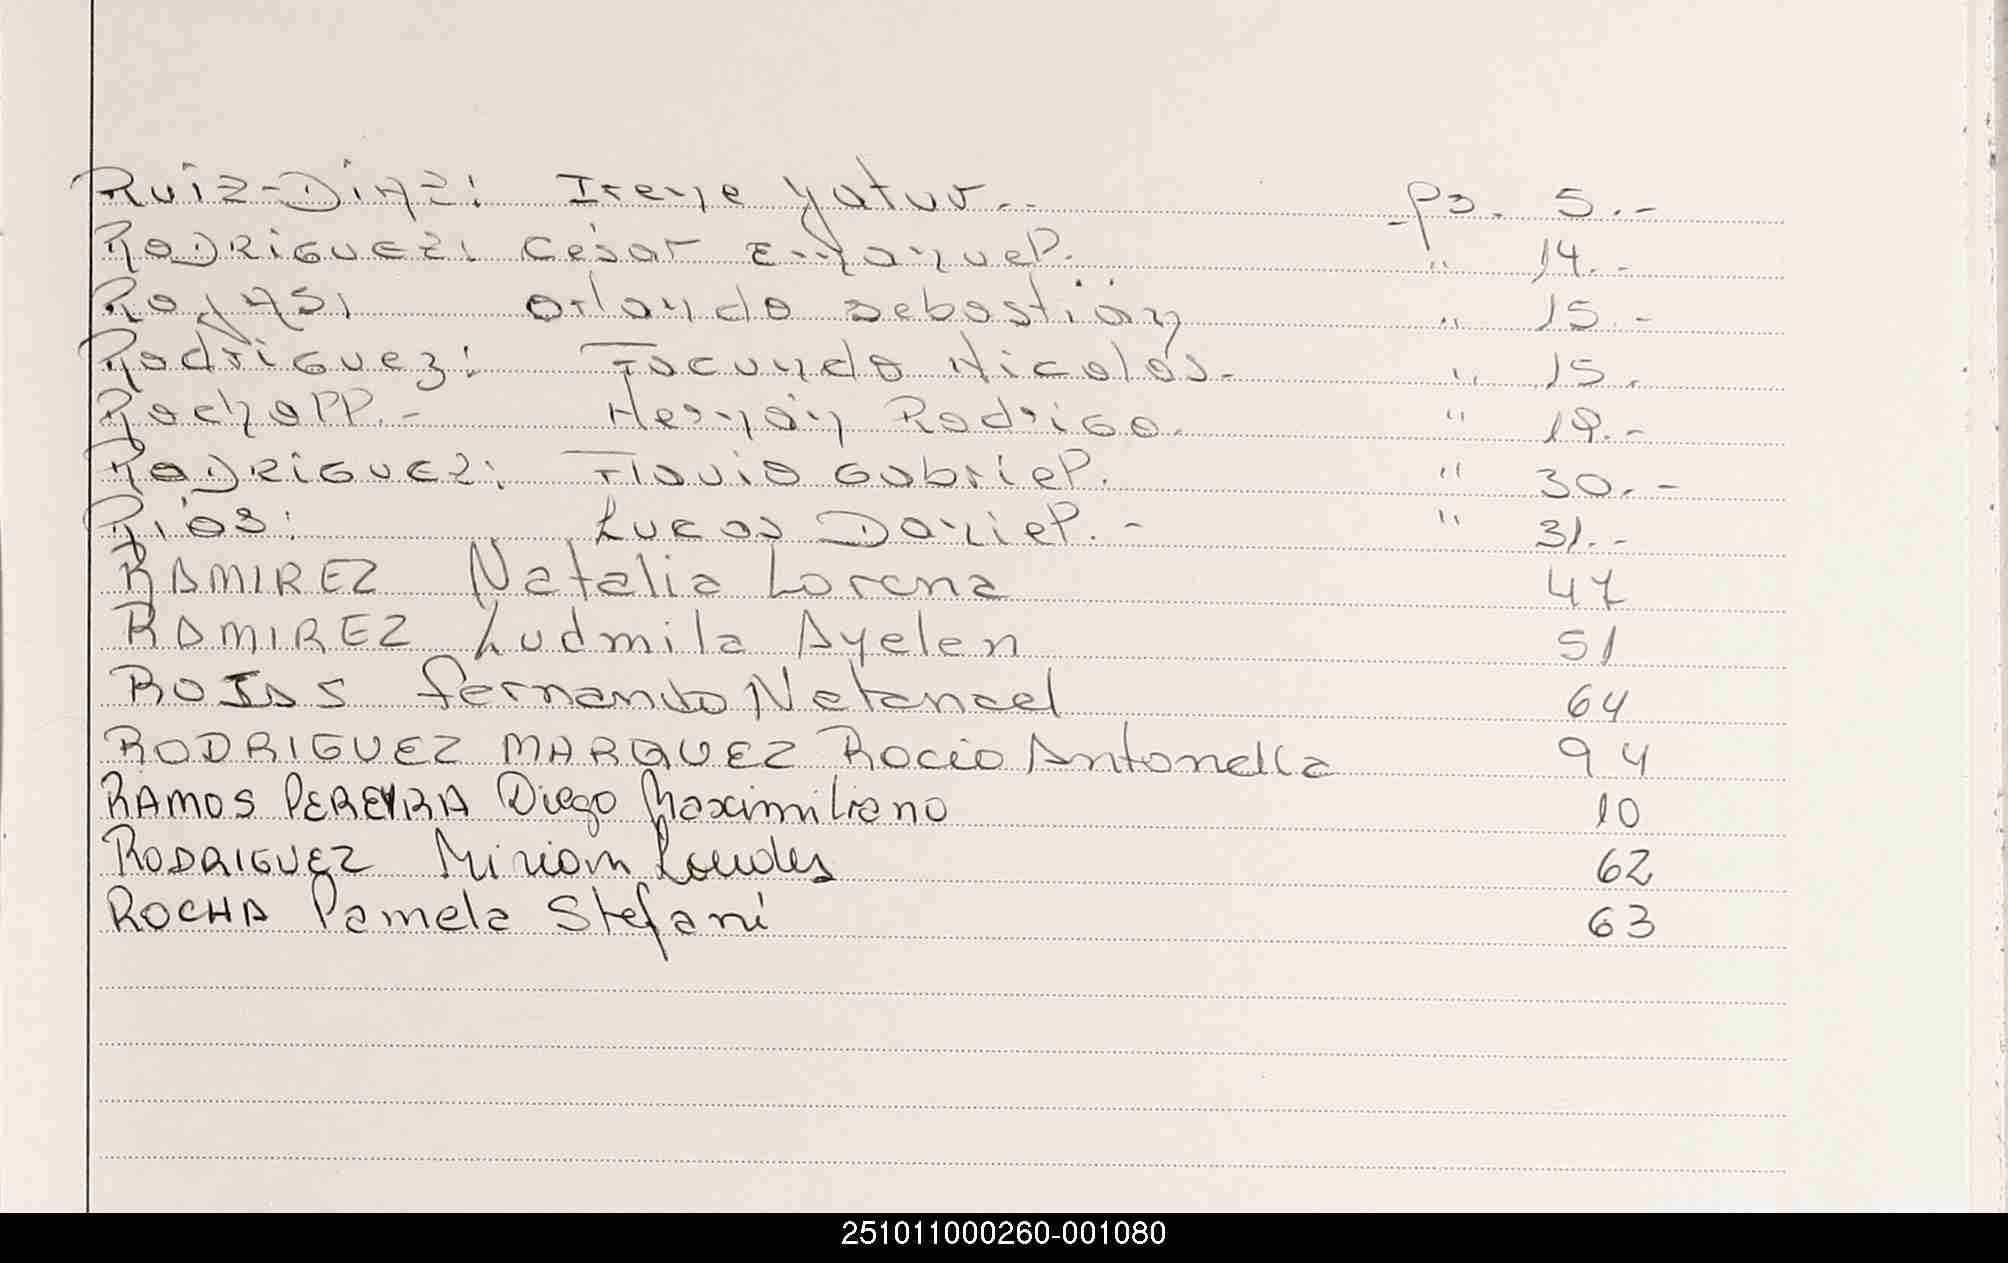 Ruiz-Diaz: Irene yatur.-- pg. 5.-
RODRIGUEZ: Cesar Emanuel. " 14.-
Rojas: Orlando Sebastián " 15.-
Rodriguez: Facundo Nicolás.- " 15.
Rochall.- Hernán Rodrigo. " 19.-
RODRIGUEZ: Flavio Gabriel. " 30.-
Ríos: Lucas Daniel.- " 31.-
RAMIREZ Natalia Lorena 47
RAMIREZ Ludmila Ayelen 51
ROJAS Fernando Natanael 64
RODRIGUEZ MARQUEZ Rocio Antonella 94
RAMOS PEREYRA Diego Maximiliano 10
RODRIGUEZ Miriam Lourdes 62
ROCHA Pamela Stefani 63
251011000260-001080